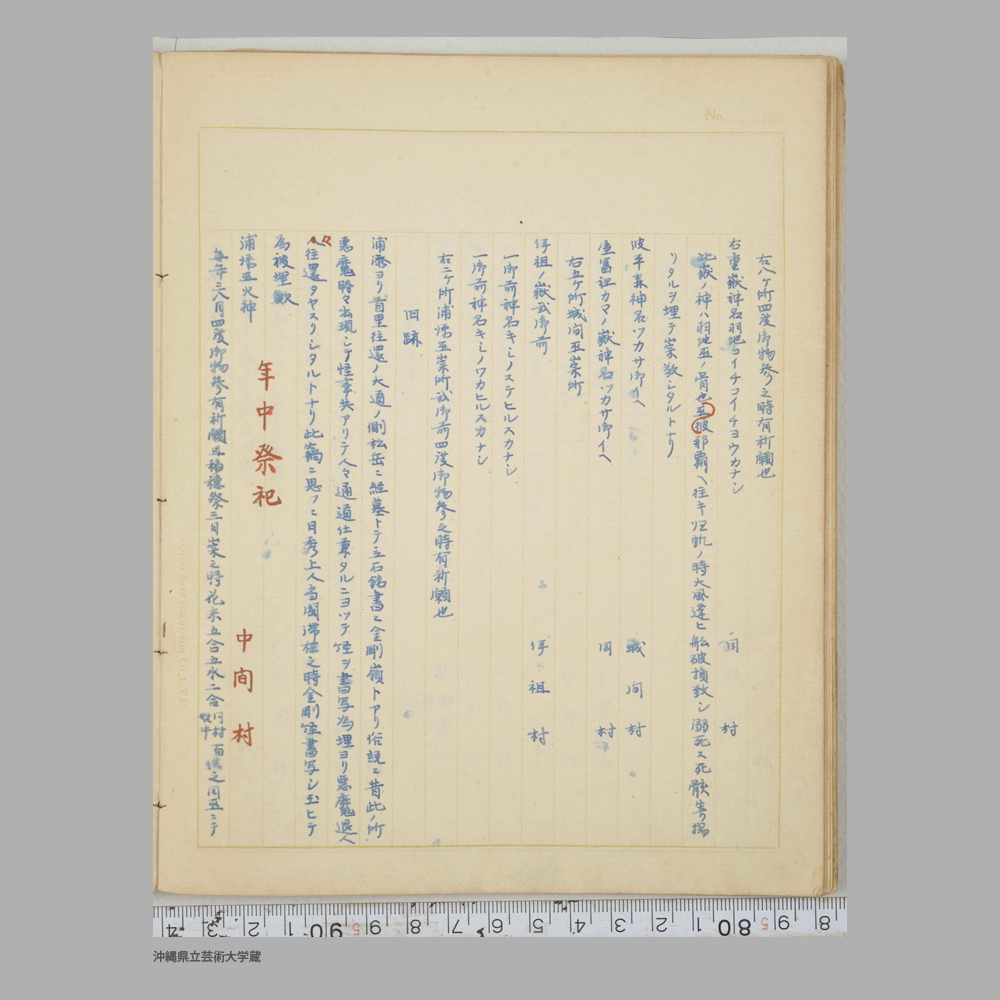 No.
右八ケ所四度御物参之時有祈願也
右重嶽神名羽地コイチコイチヨウカナシ 同村
此嶽ノ神ハ羽地巫ノ骨也巫彼那覇ヘ往キ帰帆ノ時大風逢ヒ船破損致シ溺死ス死骸寄リ揚
リタルヲ埋テ崇敬シタルトナリ
波平森神名ツカサ御イヘ 城間村
屋富祖カマノ嶽神名ツカサ御イヘ 同村
右五ケ所城間巫崇所
伊祖ノ嶽弐御前 伊祖村
一御前神名キミノステヒルスカナシ
一御前神名キミノワカヒルスカナシ
右二ケ所浦添巫崇所弐御前四度御物参之時有祈願也
旧跡
浦添ヨリ首里往還ノ大通ノ側松岳ニ経墓トテ立石銘書ニ金剛嶺トアリ俗説ニ昔此ノ所
悪魔時々出現シテ怪事共アリテ人々通道仕兼タルニヨツテ経ヲ書写為埋ヨリ悪魔退人
々往還タヤスクシタルトナリ此窃ニ思フニ日秀上人当国滞在之時金剛経書写シ玉ヒテ
為被埋歟
年中祭祀
浦添巫火神 中間村
毎年三八月四度御物参有祈願且稲穂祭三日崇之時花米五合五水二合同村百姓之同巫ニテ
沖縄県立芸術大学蔵
4 3 2 1 90 9 8 7 6 5 4 3 2 1 80 9 8